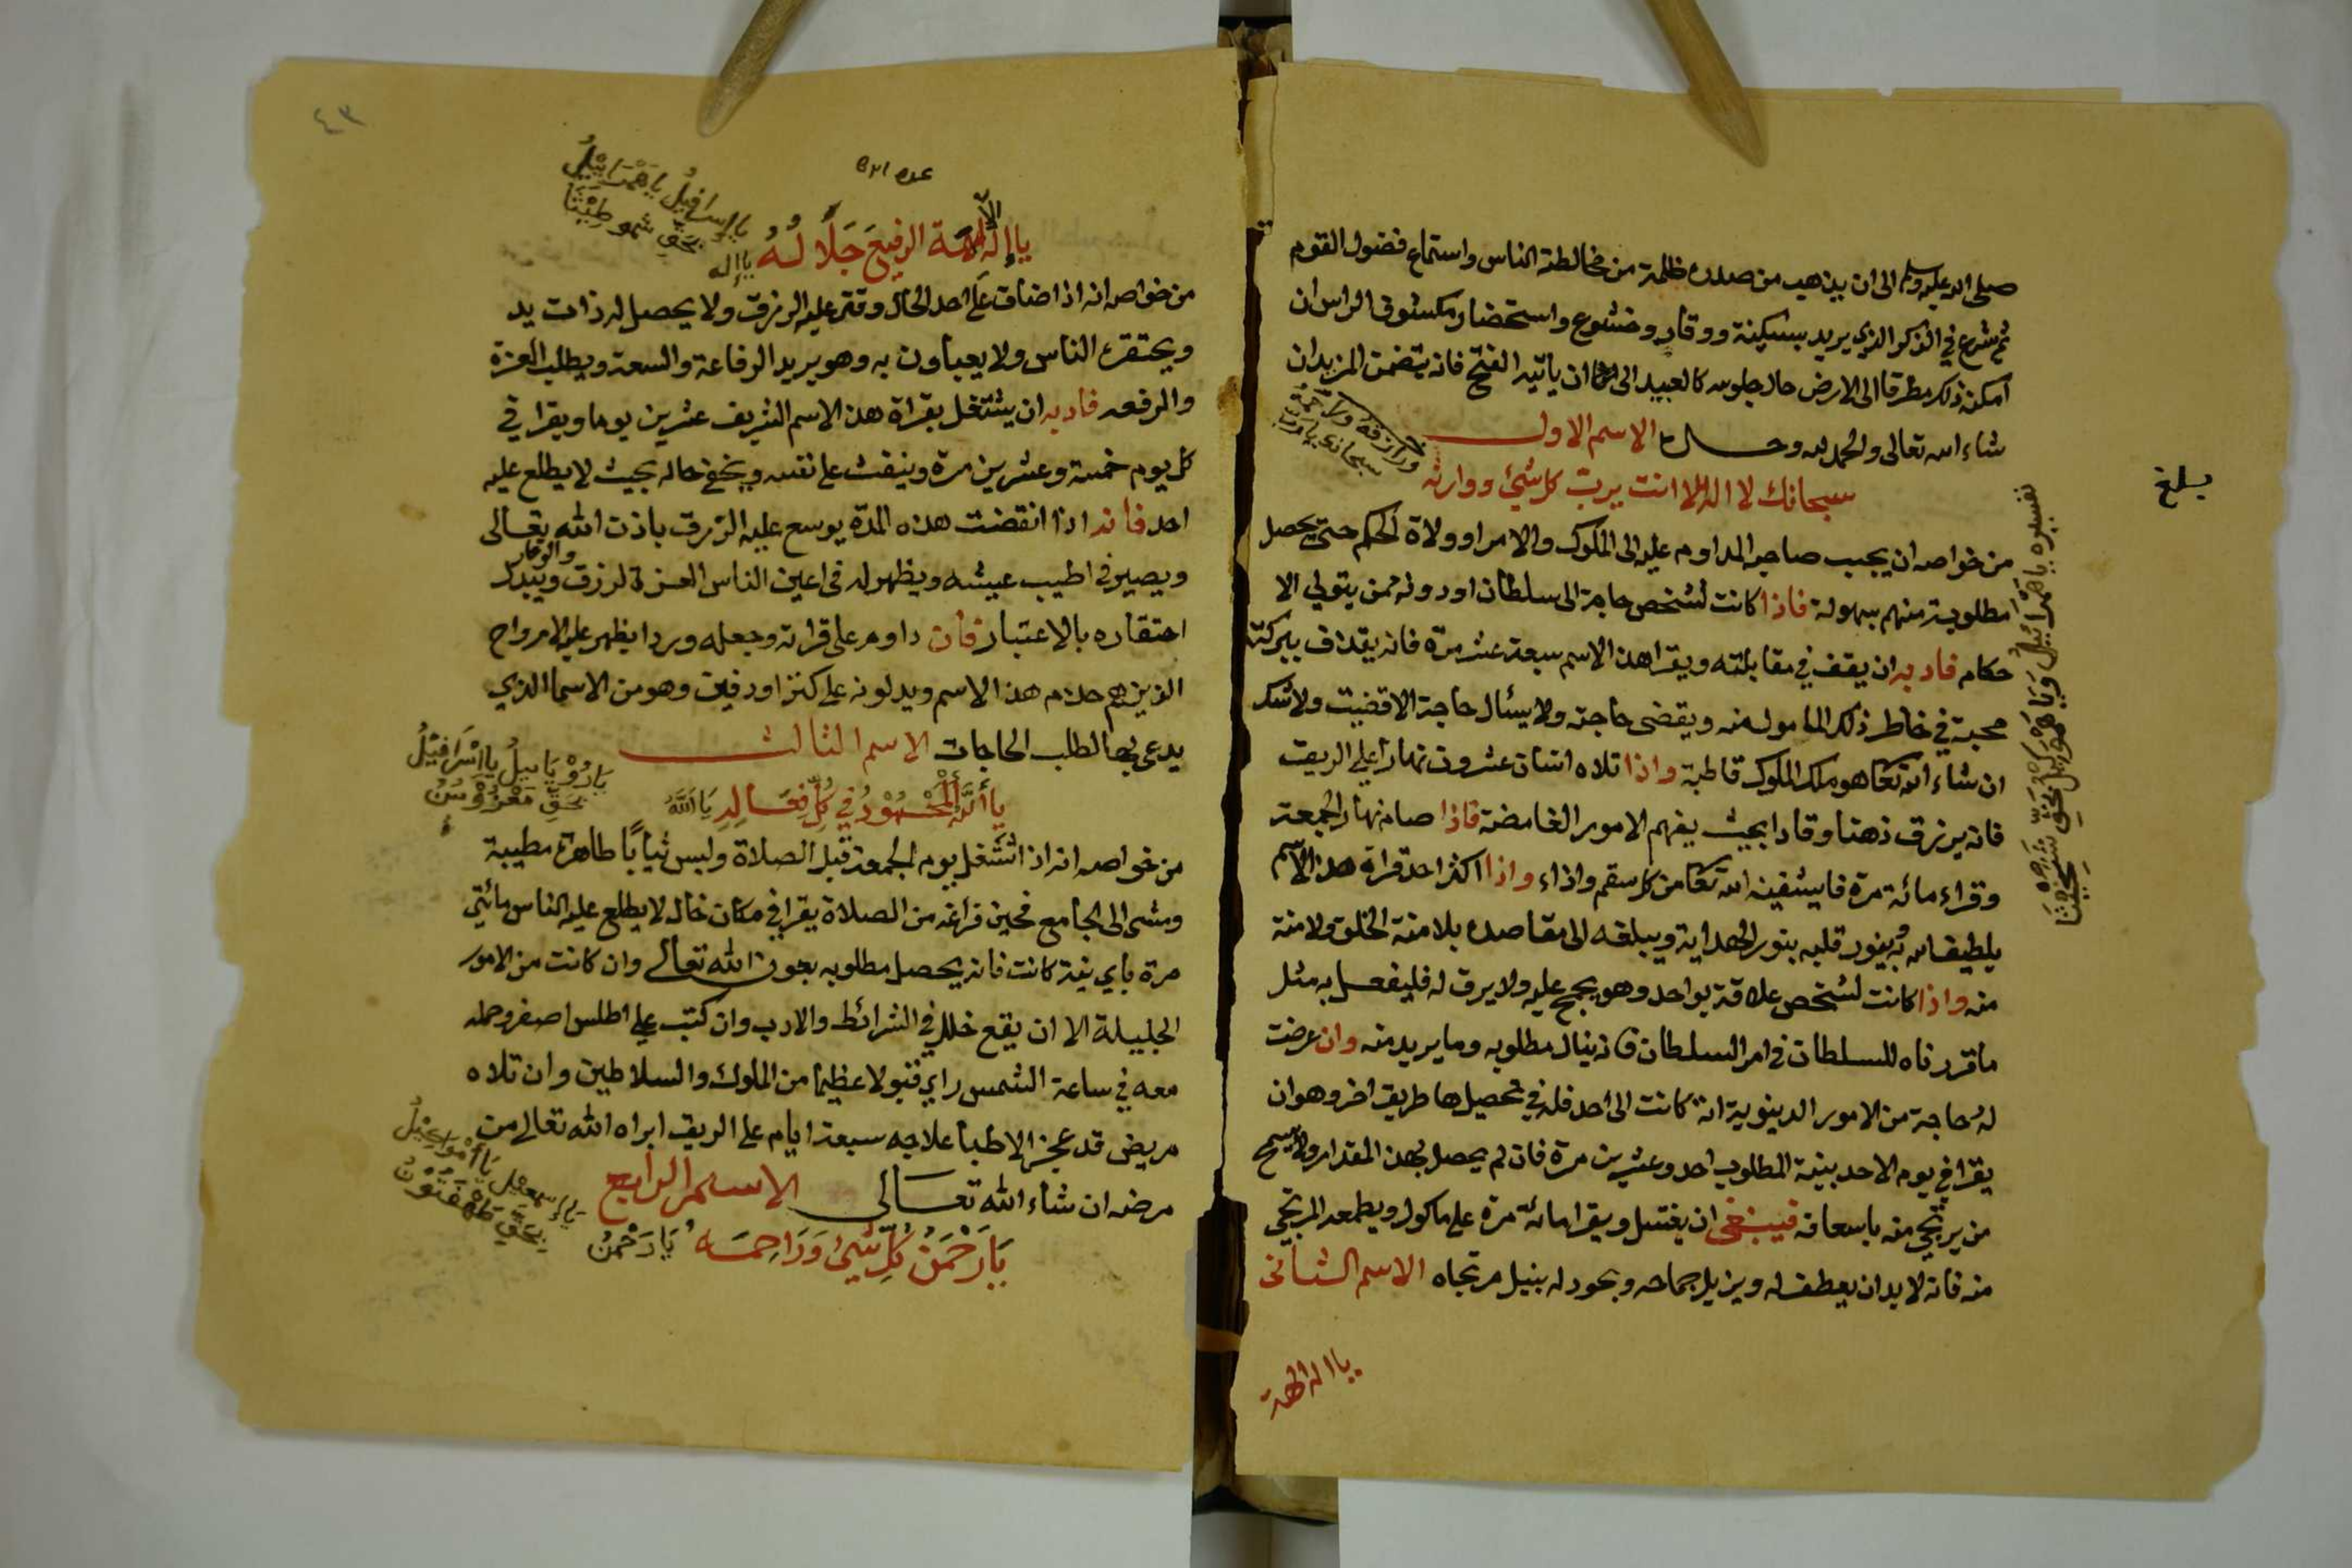 صلى الله عليه وسلم الى ان يذهب من صدره ظلمة من مخالطة الناس واستماع فضول القوم
ثم شرع في الذكر الذي يريد بسكينة ووقار وخشوع واستحضار مكشوف الراس ان
امكنه ذلك مطرقا الى الارض حال جلوسه كالعبيد الى ان ياتيه الفتح فانه يتضمن المزيد ان
شاء الله تعالى والحمد لله وحده الاسم الاول
سبحانك لا اله الا انت يرب كل شيئ ووارثه
ورازقه وراحمه
سبحانك يا رب
بلغ
من خواصه ان يجب صاحبه المداوم عليه الى الملوك والامرا وولاة الحكم حتى يحصل
مطلوبة منهم بسهولة فاذا كانت لشخص حاجة الى سلطان او دونه ممن يتولي الا
حكام فادبه ان يقف في مقابلته ويقرا هذا الاسم سبعة عشر مرة فانه يقذف ببركته
محبة في خاطر ذلك المامول منه ويقضى حاجته ولا يسئال حاجة الا قضيت ولا شك
ان شاء الله تعا هو ملك الملوك قاطبة واذا تلاه اثنان عشرون نهارا علي الريق
فانه يرزق ذهنا وقادا بحيث يفهم الامور الغامضة فاذا صام نهار الجمعة
وقراء مائة مرة فايشفينه الله تعا من كل سقم واذاء واذا اكثر احد قراة هذا الاسم
يلطيف الله به ينور قلبه بنور الهداية ويبلغه الى مقاصده بلا منة الخلق ولا منة
منه واذا كانت لشخص علاقة بواحد وهو يجمح عليه ولا يرق له فليفعل به مثل
ما قررناه للسلطان في امر السلطان فانه ينال مطلوبه وما يريد منه وان عرضت
له حاجة من الامور الدينوية انة كانت الى احد فله في تحصيلها طريق اخر وهو ان
يقرا في يوم الاحد بينية المطلوب احد وعشرين مرة فان لم يحصل بهذا المقدار ولا يسمح
من يرتجي منه باسعافه فينبغي ان يغتسل ويقرا مائة مرة على ماكول ويطعمه المرتجي
منه فانه لا بد ان يعطف له ويزيل جماحه ويجود له بنيل مرتجاه الاسم الثاني
يا اله الالهة
٤٣
عدد
يا إسرافيل يا همرائيل
بحق شمو طيثا
يا إله الآلهة الرفيع جلاله يا إله
من خواصه انه اذا ضاق على احد الحال وقتر عليه الرزق ولا يحصل له ذات يد
ويحتقره الناس ولا يعباون به وهو يريد الرفاعة والسعة ويطلب العزة
والرفعه فادبه ان يشتغل بقراة هذا الاسم الشريف عشرين يوما ويقرا في
كل يوم خمسة وعشرين مرة وينفث على نفسه ويخفي حاله بحيث لا يطلع عليه
احد فانه اذا انقضت هذه المدة يوسع عليه الرزق باذن الله تعالى
والوقار
ويصير في اطيب عيشه ويظهر له في اعين الناس العزة لرزق ويتبدل
احتقاره بالاعتبار فان داوم على قراته وجعله وردا يظهر عليه الارواح
الذين هم خدام هذا الاسم ويدلونه على كنز او دفين وهو من الاسما الذي
يدعى بها لطلب الحاجات الاسم الثالث
يا الله المحمود في كل فعاله يا الله
يا رؤيائيل يا إسرافيل
من خواصه انه اذا اشتغل يوم الجمعة قبل الصلاة ولبس ثيابا طاهرة مطيبة
ومشى الى الجامع فحين فراغه من الصلاة يقرا في مكان خال لا يطلع عليه الناس مائتي
مرة باي نية كانت فانه يحصل مطلوبه بعون الله تعالى وان كانت من الامور
الجليلة الا ان يقع خلل في الشرائط والادب وان كتب على اطلس اصفر وحمله
معه في ساعة الشمس راي قبولا عظيما من الملوك والسلاطين وان تلاه
مريض قد عجز الاطبا علاجه سبعة ايام على الريق ابراه الله تعالى من
مرضه ان شاء الله تعالى الاسم الرابع
يا رحمن كل شيئ وراحمه يا رحمن